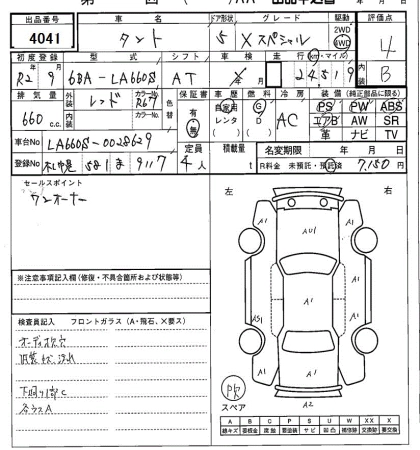 出品番号 車名 ドア形状 グレード 駆動 評価点
4041 タント 5 Xスペシャル 2WD 4WD 4
初度登録 型式 シフト 車検 走行 km・マイル 内装
R2 9 6BA-LA660S AT 年 月 24,519 B
排気量 外装 レッド カラーNo. R67 色替 保証書 車歴 燃料 冷房 装備（純正部品に限る）
660 c.c. 内装 カラーNo. 有・無 自家用 レンタ G D AC PS PW ABS
エアB AW SR
革 ナビ TV
車台No LA660S-0028629 定員 積載量 名変期限 年 月 日
登録No 581 ま 9117 4人 t R料金 未預託・預託済 7,150円
セールスポイント
ワンオーナー
左 右
※注意事項記入欄（修復・不具合箇所および状態等）
検査員記入 フロントガラス（A・飛石、X要ス）
オーディオ欠
内装キズ汚れ
下廻り部C
ガラスA
A1 AU1 A1
A1 A1 A1
AS1 A1
A1 A1
A2
スペア
A B C P S U W X XX X
線キズ 要板金 腐蝕 要塗装 サビ 凹凸 補修跡 交換跡 要交換